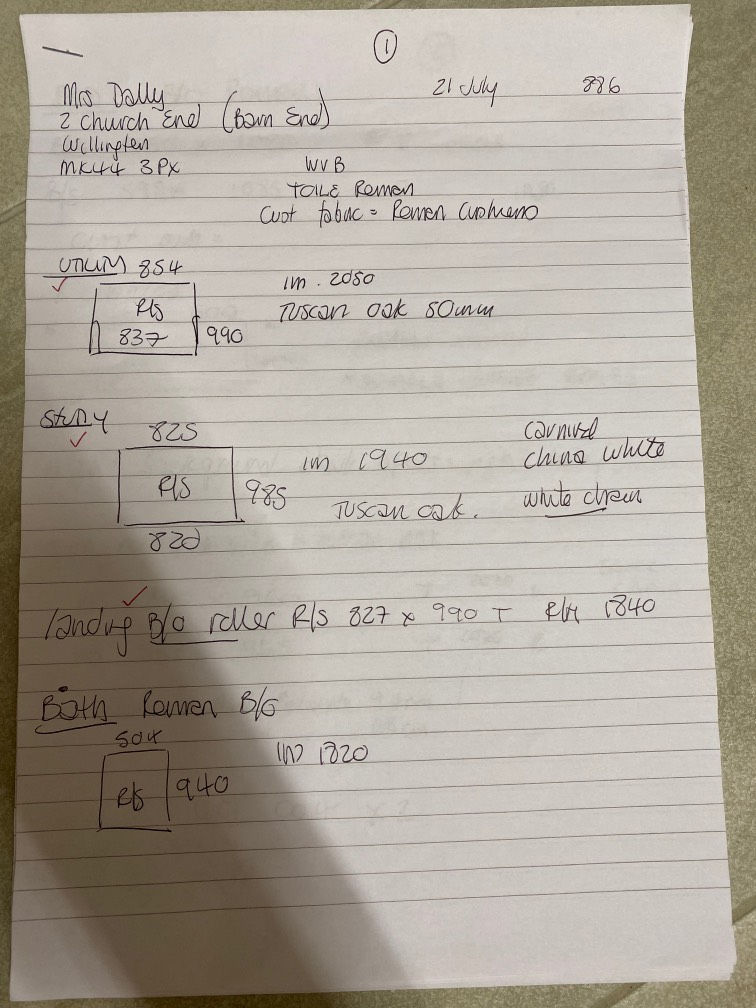 ①
Mrs Dally 21 July 886
2 Church End (Barn End)
Willington
MK44 3PX WVB
TOILE Roman
Cust fabric = Roman Cushions
UTILITY 854
R/S 1m. 2050
837 990 Tuscan oak 50mm
STUDY 825 carnival
1m 1940 china white
R/S 985 Tuscan oak. white chain
820
landing B/O roller R/S 827 x 990 T R/H 1840
Bath Roman B/O
504
R/S 940 1820